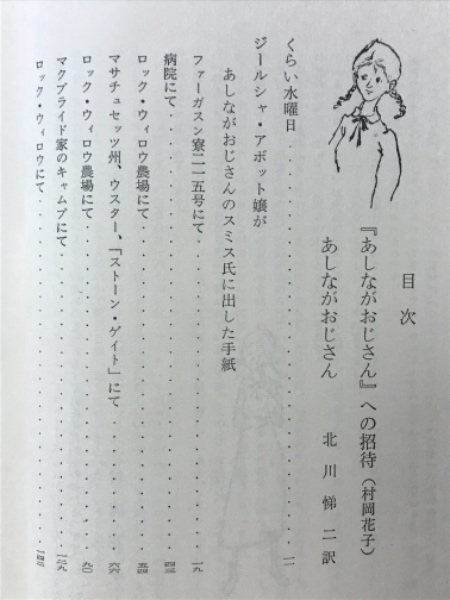 目次
『あしながおじさん』への招待(村岡花子)
あしながおじさん 北川悌二訳
くらい水曜日・・・・・・・・・・・・・・・・・・・・一一
ジールシャ・アボット嬢が
あしながおじさんのスミス氏に出した手紙
ファーガスン寮二一五号にて・・・・・・・・・・・・・・・・一九
病院にて・・・・・・・・・・・・・・・・・・・・・・四三
ロック・ウィロウ農場にて・・・・・・・・・・・・・・・・・五四
マサチュセッツ州、ウスター、「ストーン・ゲイト」にて・・・・・・・六六
ロック・ウィロウ農場にて・・・・・・・・・・・・・・・・・九〇
マクブライド家のキャムプにて・・・・・・・・・・・・・・・一二九
ロック・ウィロウにて・・・・・・・・・・・・・・・・・・・一四三